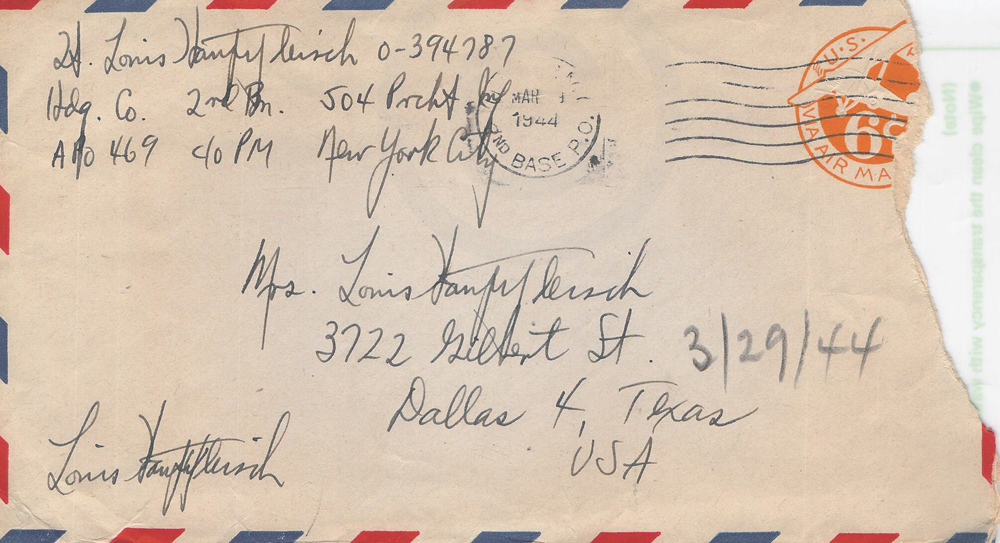 Lt. Louis Hauptfleisch 0-394787
Hdq. Co. 2nd Bn. 504 Prcht
APO 469 c/o PM New York City
MAR
1944
2ND BASE P.O.
U.S.
6¢
VIA AIR MA
Mrs. Louis Hauptfleisch
3722 Gilbert St.
3/29/44
Dallas 4, Texas
USA
Louis Hauptfleisch